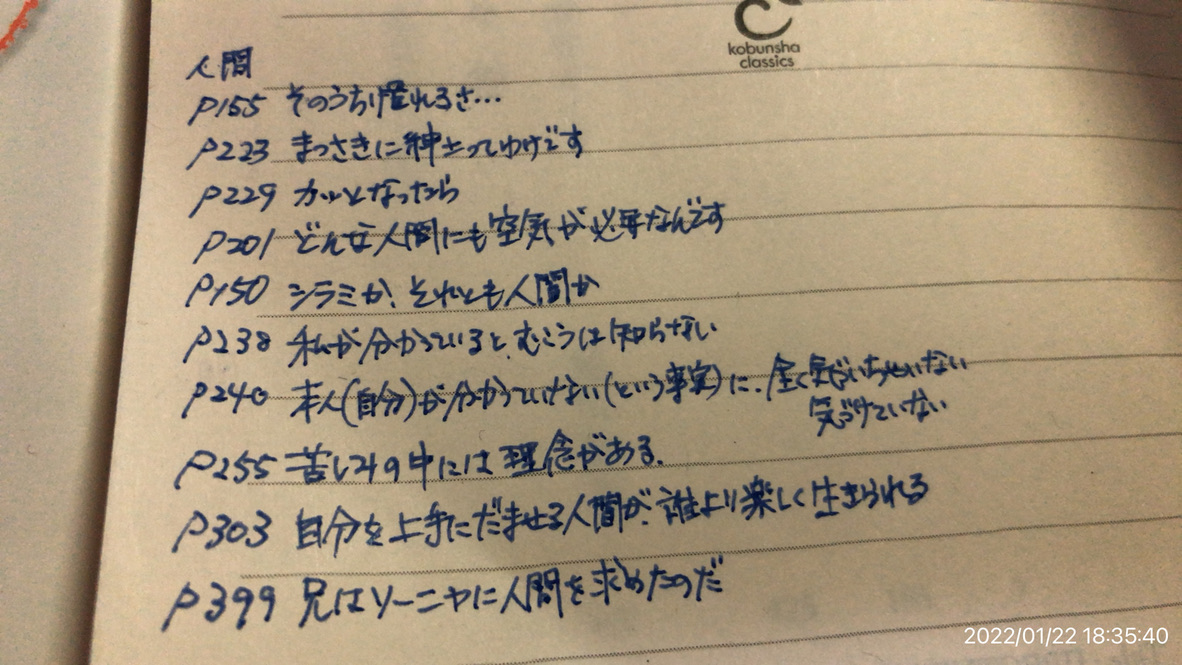 kobunsha
classics
人間
P155 そのうち慣れるさ…
P223 まっさきに紳士ってわけです
P229 カッとなったら
P201 どんな人間にも空気が必要なんです
P150 シラミか、それとも人間か
P238 私が分かっていると、むこうは知らない
P240 本人(自分)が分かっていない(という事実)に、全く気づいちゃいない
気づけていない
P255 苦しみの中には理念がある。
P303 自分を上手にだませる人間が、誰より楽しく生きられる
P399 兄はソーニャに人間を求めたのだ
2022/01/22 18:35:40